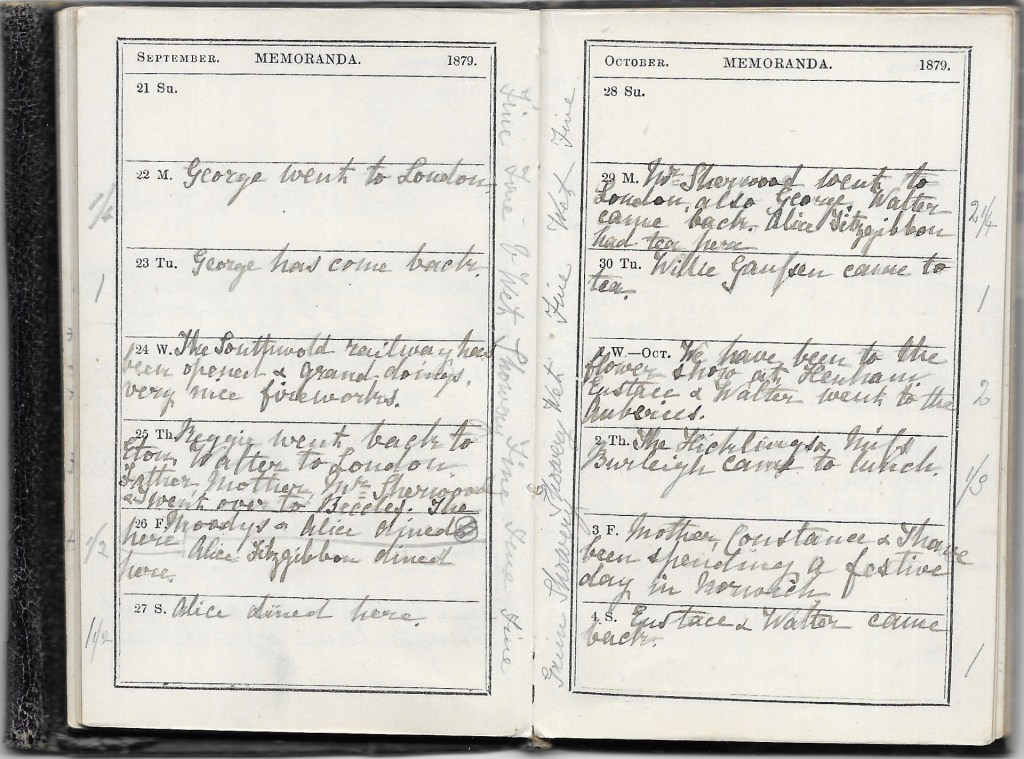 SEPTEMBER. MEMORANDA. 1879.
21 Su.
22 M. George went to London
1/4
23 Tu. George has come back.
1
24 W. The Southwold railway has
been opened & grand doings,
very nice fireworks.
25 Th. Reggie went back to
Eton, Walter to London
Father, Mother, Mr. Sherwood
& I went over to Beccles. The
26 F. Moodys & Alice dined
here Alice Fitzgibbon dined
here.
1/2
27 S. Alice dined here.
1 1/2
Fine Fine Wet Showery Fine Fine Fine
OCTOBER. MEMORANDA. 1879.
28 Su.
29 M. Mr. Sherwood went to
London, also George, Walter
came back. Alice Fitzgibbon
had tea here
2 1/4
30 Tu. Willie Gaussen came to
tea.
1
1 W.—OCT. We have been to the
flower show at Henham
Eustace & Walter went to the
2
2 Th. The Hicklings & Miss
Burleigh came to lunch.
3 F. Mother, Constance & I have
been spending a festive
day in Norwich
4 S. Eustace & Walter came
back.
1
Showery Showery Wet Fine Fine Wet Fine